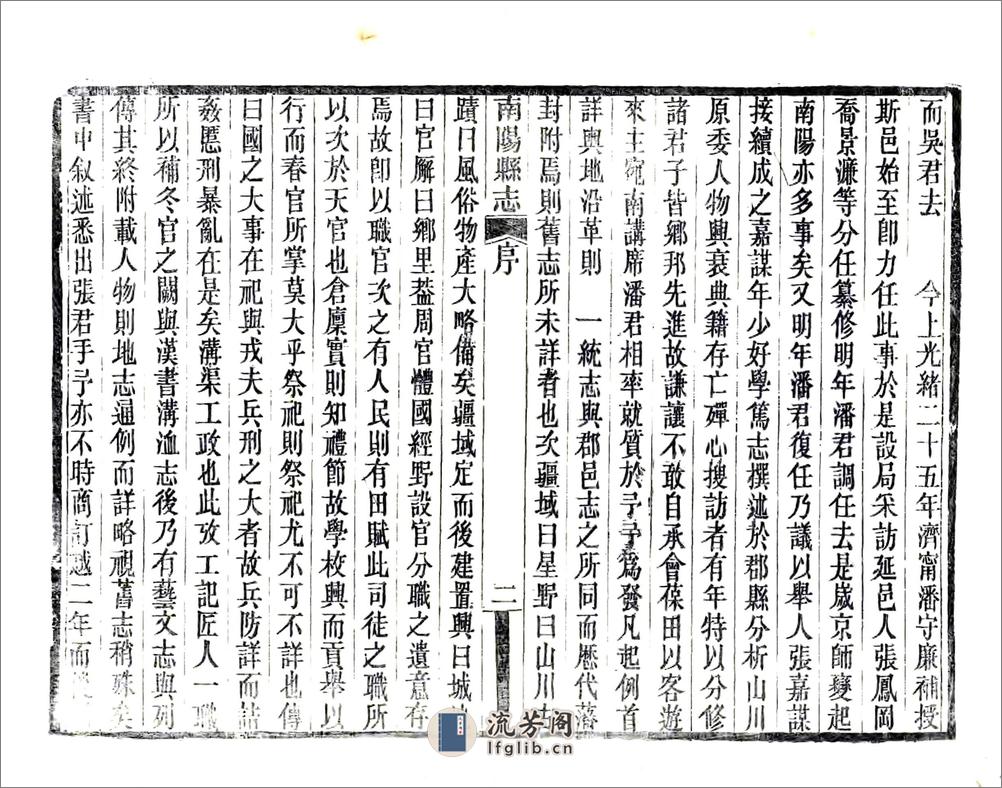 而吳君去　今上光緒二十五年濟甯潘守廉補授
斯邑始至卽力任此事於是設局采訪延邑人張鳳岡
喬景濂等分任纂修明年潘君調任去是歲京師變起
南陽亦多事矣又明年潘君復任乃議以舉人張嘉謀
接續成之嘉謀年少好學篤志撰述於郡縣分析山川
原委人物興衰典籍存亡殫心搜訪者有年特以分修
諸君子皆鄉邦先進故謙讓不敢自承會葆田以客遊
來主宛南講席潘君相率就質於予予爲發凡起例首
詳輿地沿革則　一統志與郡邑志之所同而歷代藩
封附焉則舊志所未詳者也次疆域曰星野曰山川古
南陽縣志　序　二
蹟曰風俗物產大略備矣疆域定而後建置興曰城池
曰官廨曰鄉里葢周官體國經野設官分職之遺意存
焉故卽以職官次之有人民則有田賦此司徒之職所
以次於天官也倉廩實則知禮節故學校興而貢舉以
行而春官所掌莫大乎祭祀則祭祀尤不可不詳也傳
曰國之大事在祀與戎夫兵刑之大者故兵防詳而詰
姦慝刑暴亂在是矣溝渠工政也此攷工記匠人一職
所以補冬官之闕與漢書溝洫志後乃有藝文志與列
傳其終附載人物則地志通例而詳略視舊志稍殊矣
書中叙述悉出張君手予亦不時商訂越二年而
流芳阁
lfglib.cn